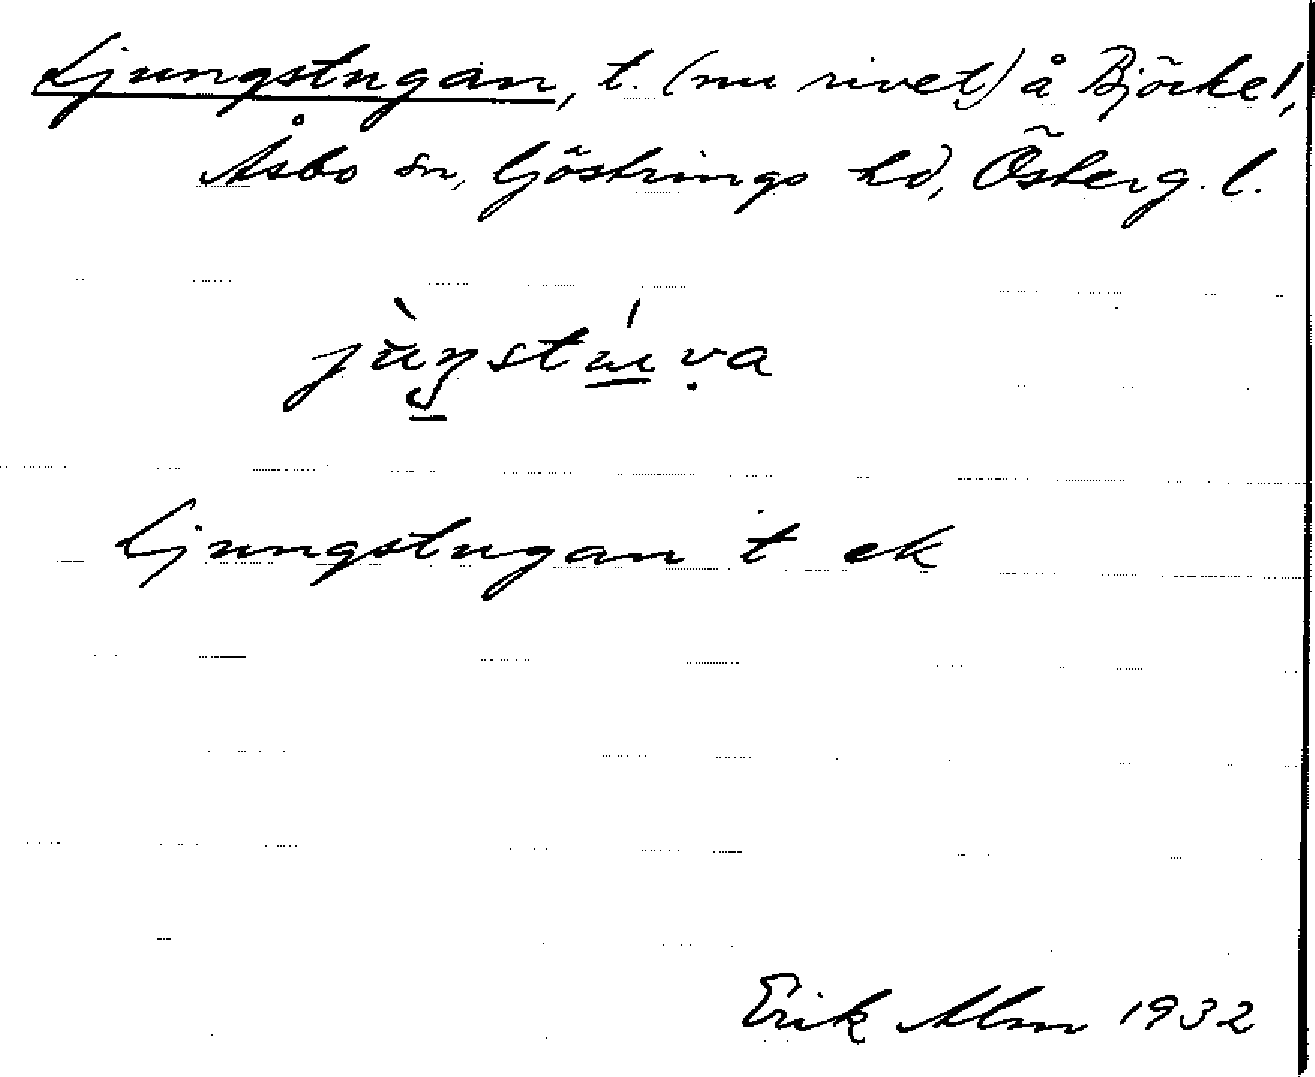 Ljungstugan, t. (nu rivet) å Björke 1,
Åsbo sn, Göstrings hd, Österg. l.
jùŋstúva
Ljungstugan t ek
Erik Alm 1932